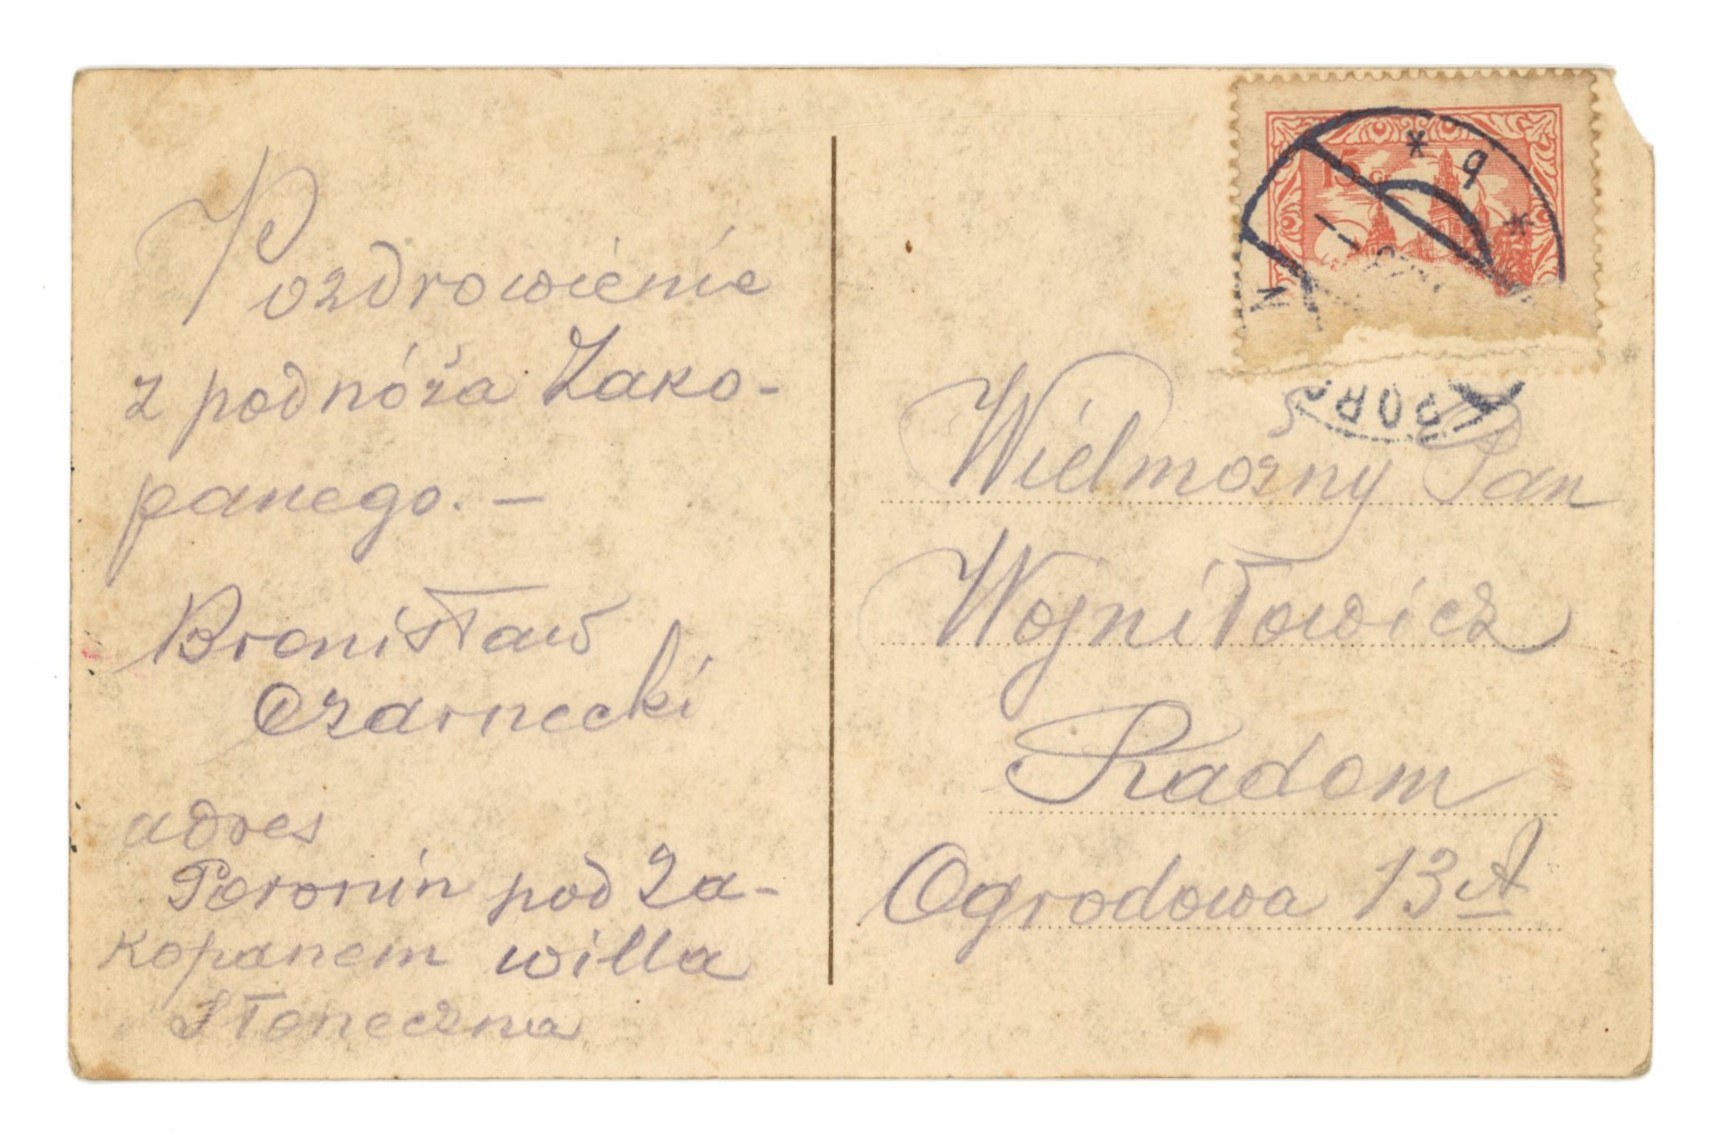 Pozdrowienie
z podnóża Zako-
panego. —
Bronisław
Czarnecki
adres
Poronin pod Za-
kopanem willa
Słoneczna
15
* b *
Wielmożny Pan
Wojniłowicz
Radom
Ogrodowa 13 A